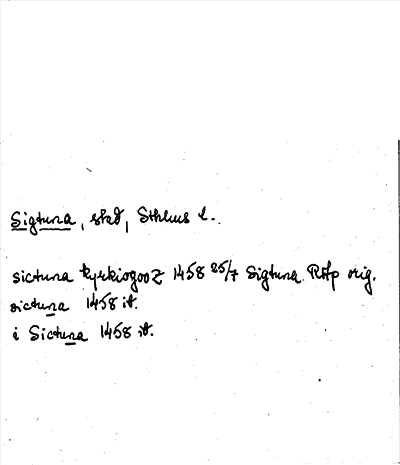 Sigtuna, stad, Sthlms l.
sictuna kyrkiogooz 1458 25/7 Sigtuna RAp orig.
sictuna 1458 it.
i Sictuna 1458 it.